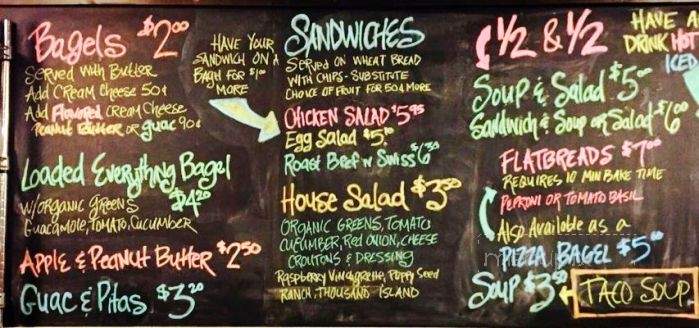 Bagels $2.00
Served with Butter
Add Cream Cheese 50¢
Add Flavored Cream Cheese
Peanut Butter or guac 90¢
HAVE YOUR
SANDWICH ON A
Bagel FOR $1.00
MORE
Loaded Everything Bagel
$4.20
w/ORGANIC GREENS
Guacamole, Tomato, Cucumber
Apple & Peanut Butter $2.50
Guac & Pitas $3.20
SANDWICHES
SERVED ON WHEAT BREAD
WITH CHIPS - SUBSTITUTE
CHOICE OF FRUIT FOR 50¢ MORE
CHICKEN SALAD $5.95
Egg Salad $5.00
Roast Beef n Swiss $6.30
House Salad $3.50
ORGANIC GREENS, TOMATO
CUCUMBER, Red ONION, CHEESE
CROUTONS & DRESSING
Raspberry Vinaigrette, Poppy Seed
RANCH, THOUSAND ISLAND
1/2 & 1/2
Soup & Salad $5.00
Sandwich & Soup or Salad $6.00
FLATBREADS $7.00
REQUIRES 10 MIN BAKE TIME
PEPRONI OR TOMATO BASIL
Also Available as a
PIZZA BAGEL $5.00
Soup $3.50
TACO SOUP
HAVE A
DRINK HOT
ICED